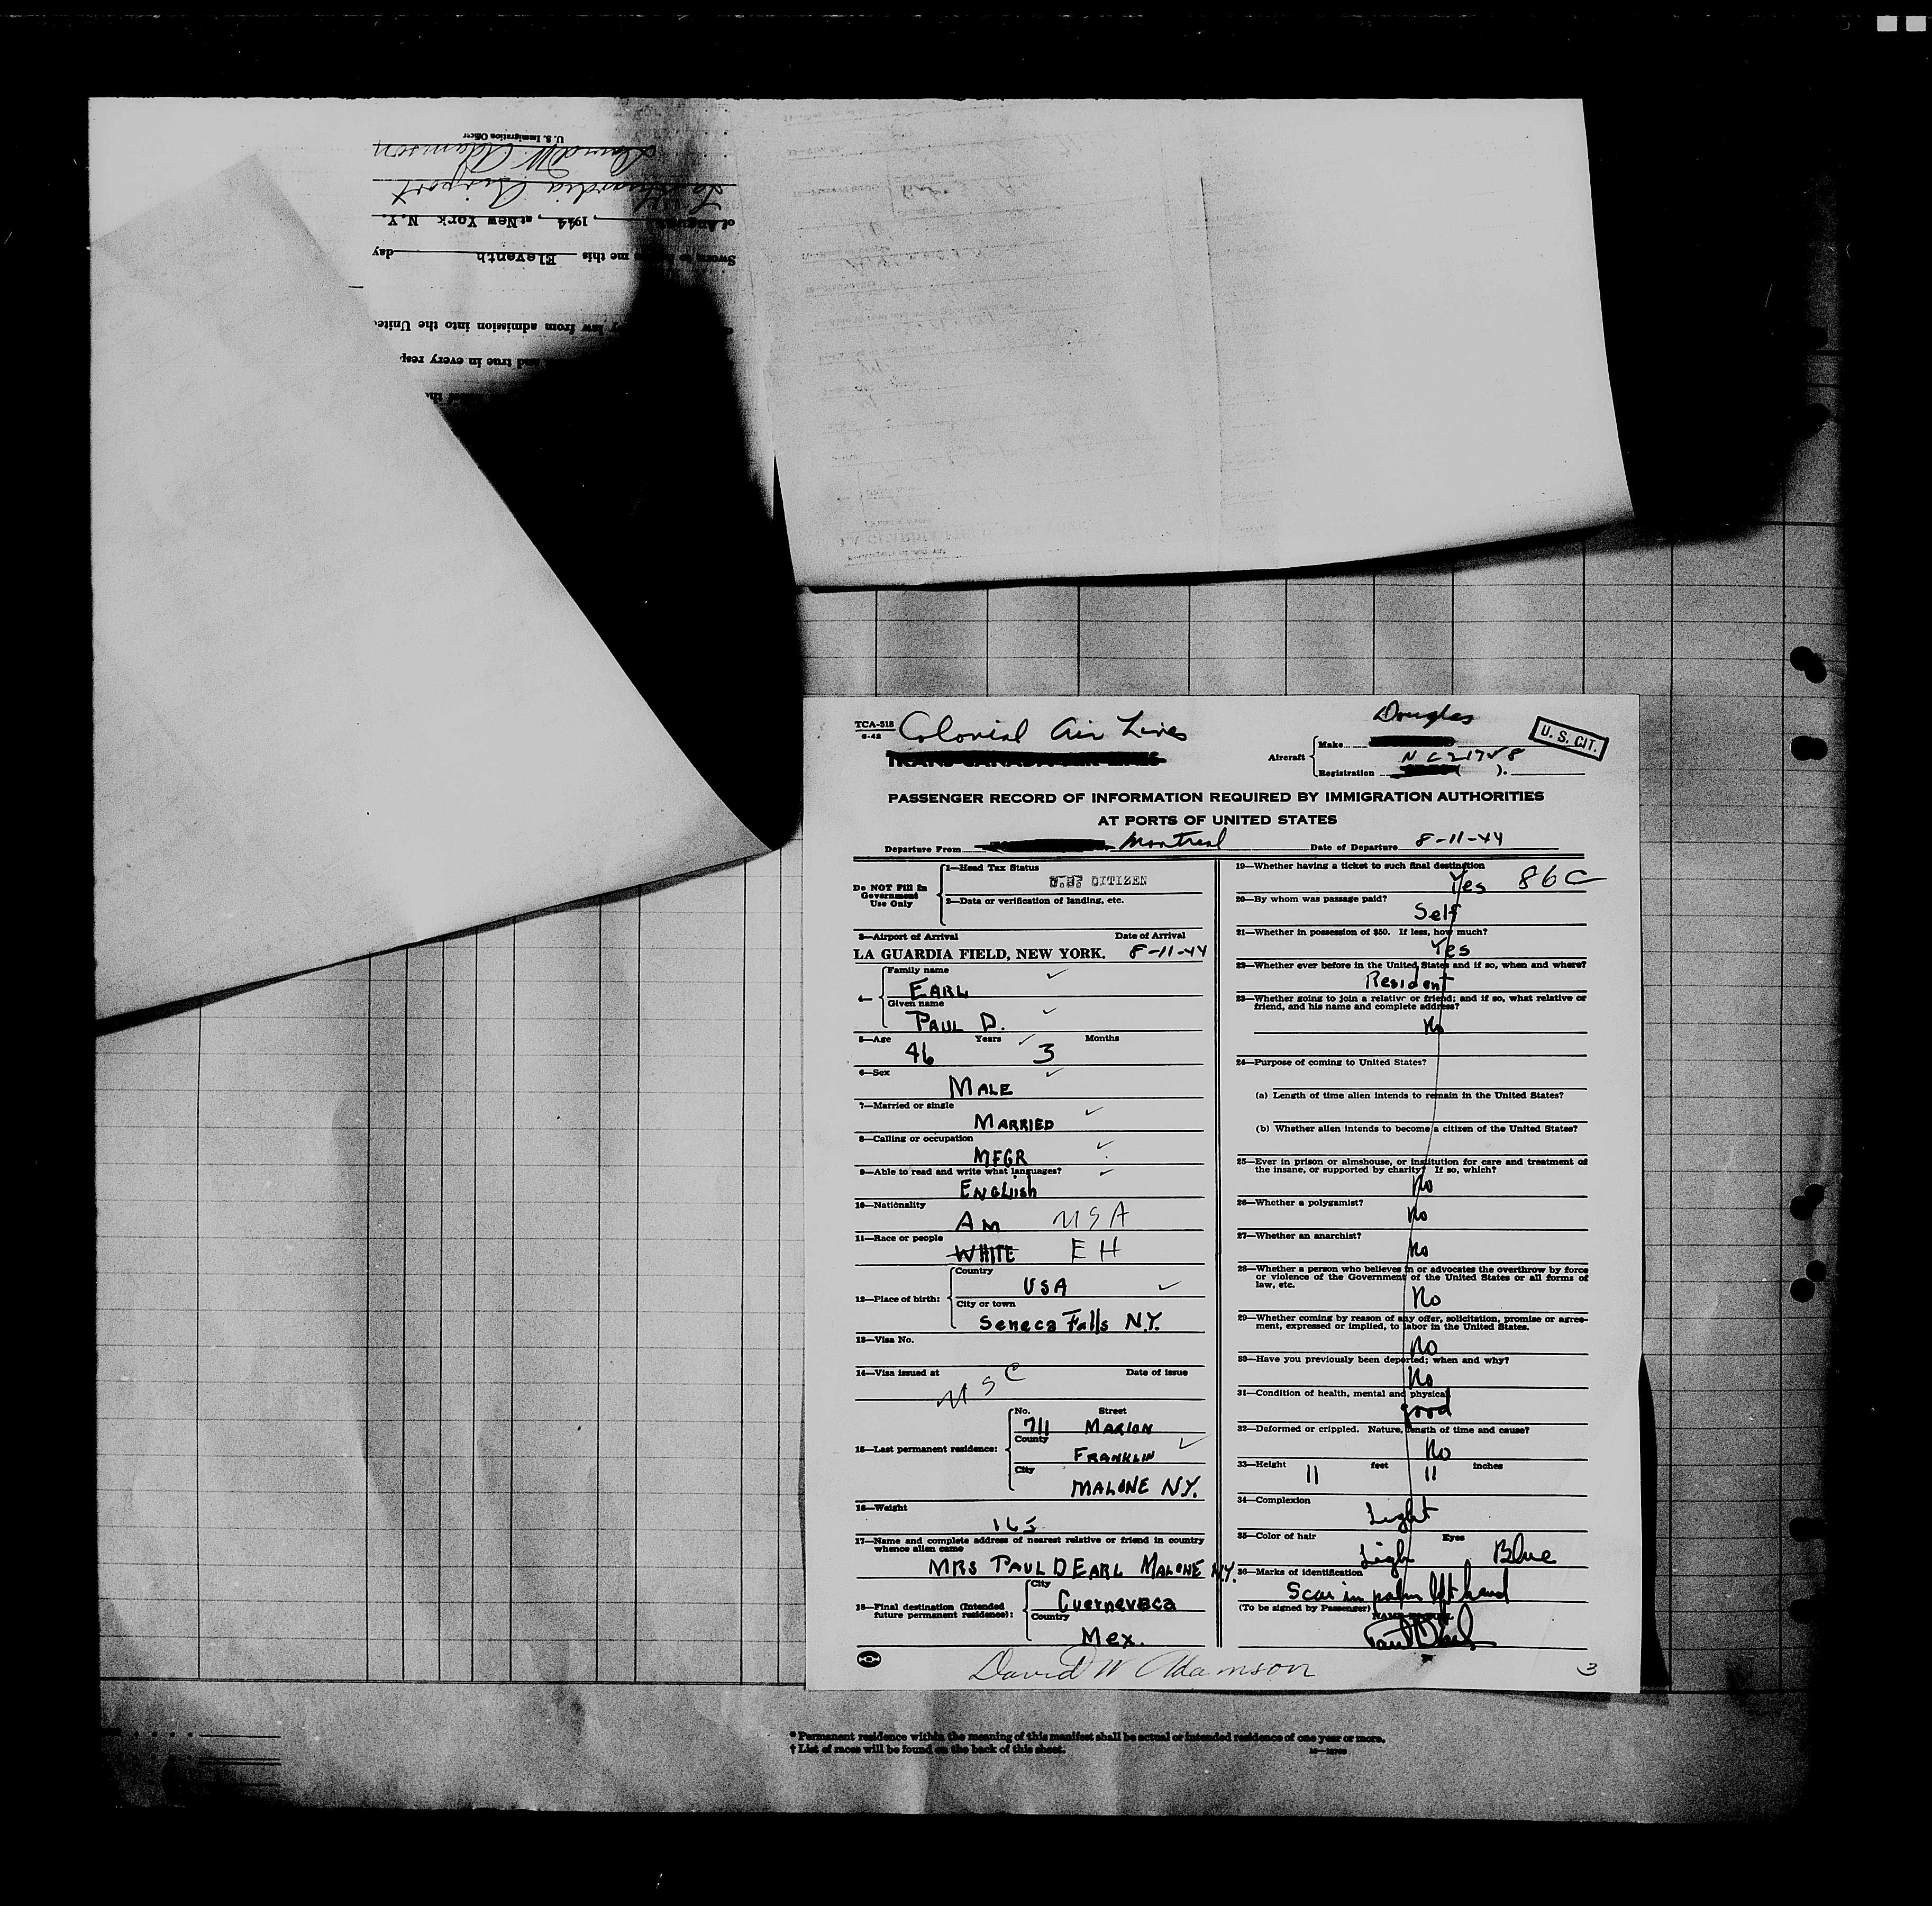 U. S. Immigration Officer
David W. Adamson
La Guardia Airport
of August, 1944, at New York N.Y.
Sworn to before me this Eleventh day
law from admission into the United
and true in every resp
TCA-518
6-42
Colonial Air Lines
TRANS-CANADA AIR LINES
Douglas
Aircraft
Make
Registration ( ).
U. S. CIT.
PASSENGER RECORD OF INFORMATION REQUIRED BY IMMIGRATION AUTHORITIES
AT PORTS OF UNITED STATES
Departure From Montreal Date of Departure 8-11-44
Do NOT Fill In Government Use Only
1—Head Tax Status
U.S. CITIZEN
2—Data or verification of landing, etc.
3—Airport of Arrival Date of Arrival
LA GUARDIA FIELD, NEW YORK. 8-11-44
4—
Family name
EARL
Given name
PAUL D.
5—Age Years Months
46 3
6—Sex
MALE
7—Married or single
MARRIED
8—Calling or occupation
MFGR
9—Able to read and write what languages?
ENGLish
10—Nationality
AM USA
11—Race or people
WHITE EH
12—Place of birth:
Country
USA
City or town
Seneca Falls N.Y.
13—Visa No.
14—Visa issued at Date of issue
USC
15—Last permanent residence:
No. Street
711 MARION
County
FRANKLIN
City
MALONE N.Y.
16—Weight
165
17—Name and complete address of nearest relative or friend in country
whence alien came
MRS PAUL D EARL MALONE N.Y.
18—Final destination (Intended
future permanent residence):
City
Cuernevaca
Country
Mex.
19—Whether having a ticket to such final destination
Yes 86C
20—By whom was passage paid?
Self
21—Whether in possession of $50. If less, how much?
Yes
22—Whether ever before in the United States and if so, when and where?
Resident
23—Whether going to join a relative or friend; and if so, what relative or
friend, and his name and complete address?
No
24—Purpose of coming to United States?
(a) Length of time alien intends to remain in the United States?
(b) Whether alien intends to become a citizen of the United States?
25—Ever in prison or almshouse, or institution for care and treatment of
the insane, or supported by charity? If so, which?
No
26—Whether a polygamist?
No
27—Whether an anarchist?
No
28—Whether a person who believes in or advocates the overthrow by force
or violence of the Government of the United States or all forms of
law, etc.
No
29—Whether coming by reason of any offer, solicitation, promise or agree-
ment, expressed or implied, to labor in the United States.
No
30—Have you previously been deported; when and why?
No
31—Condition of health, mental and physical
good
32—Deformed or crippled. Nature, length of time and cause?
No
33—Height 11 feet 11 inches
34—Complexion
Light
35—Color of hair Eyes
Ligh Blue
36—Marks of identification
Scar in palm lft hand
(To be signed by Passenger)
Paul D Earl
David W Adamson
3
* Permanent residence within the meaning of this manifest shall be actual or intended residence of one year or more.
† List of races will be found on the back of this sheet.